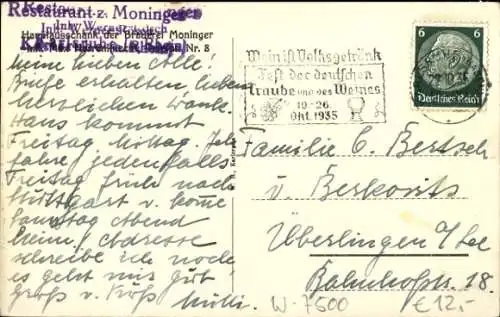 Restaurant z. Moninger
Hauptausschank der Brauerei Moninger
meine lieben Alle!
Briefe erhalten lieben
herzlichen Dank.
Hans kommt
Freitag Mittag. Ich
fahre jedenfalls
Freitag früh nach
Stuttgart u. komme
Samstag Abend
heim. Adresse
schreibe ich noch
es geht mir gut
Gruß u. Kuß Mutti.
Wein ist Volksgetränk
Fest der deutschen
Traube und des Weines
19-26
Okt. 1935
6 6
Deutsches Reich
Familie C. Bertsch
u. Berkovits
Überlingen a/See
Bahnhofstr. 18.
W-7500 €12,-